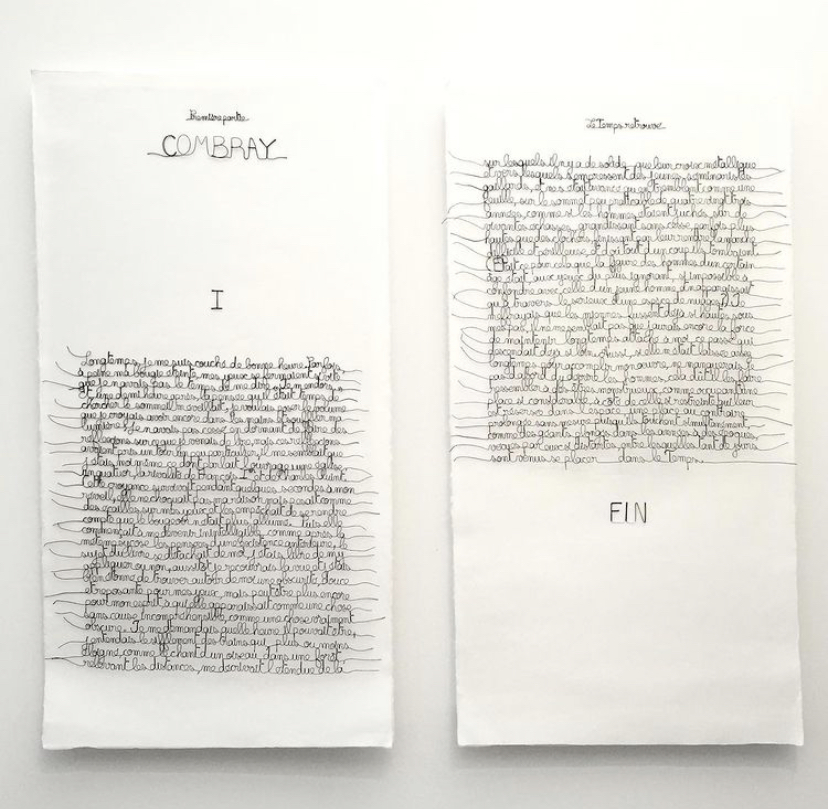 Première partie
COMBRAY
I
Longtemps, je me suis couché de bonne heure. Parfois,
à peine ma bougie éteinte, mes yeux se fermaient si vite
que je n'avais pas le temps de me dire : « Je m'endors. »
Et, une demi-heure après, la pensée qu'il était temps de
chercher le sommeil m'éveillait ; je voulais poser le volume
que je croyais avoir encore dans les mains et souffler ma
lumière ; je n'avais pas cessé en dormant de faire des
réflexions sur ce que je venais de lire, mais ces réflexions
avaient pris un tour un peu particulier ; il me semblait que
j'étais moi-même ce dont parlait l'ouvrage : une église,
un quatuor, la rivalité de François Ier et de Charles Quint.
Cette croyance survivait pendant quelques secondes à mon
réveil ; elle ne choquait pas ma raison mais pesait comme
des écailles sur mes yeux et les empêchait de se rendre
compte que le bougeoir n'était plus allumé. Puis elle
commençait à me devenir inintelligible, comme après la
métempsycose les pensées d'une existence antérieure ; le
sujet du livre se détachait de moi, j'étais libre de m'y
appliquer ou non ; aussitôt je recouvrais la vue et j'étais
bien étonné de trouver autour de moi une obscurité, douce
et reposante pour mes yeux, mais peut-être plus encore
pour mon esprit, à qui elle apparaissait comme une chose
sans cause, incompréhensible, comme une chose vraiment
obscure. Je me demandais quelle heure il pouvait être ;
j'entendais le sifflement des trains qui, plus ou moins
éloigné, comme le chant d'un oiseau dans une forêt,
relevant les distances, me décrivait l'étendue de la
Le Temps retrouvé
sur lesquels il n'y a de solide que leur croix métallique
et vers lesquels s'empressent des jeunes séminaristes
gaillards, et ne s'était avancé qu'en tremblant comme une
feuille, sur le sommet peu praticable de quatre-vingt-trois
années, comme si les hommes étaient juchés sur de
vivantes échasses, grandissant sans cesse, parfois plus
hautes que des clochers, finissant par leur rendre la marche
difficile et périlleuse, et d'où tout d'un coup ils tombaient.
(Était-ce pour cela que la figure des hommes d'un certain
âge était, aux yeux du plus ignorant, si impossible à
confondre avec celle d'un jeune homme et n'apparaissait
qu'à travers le sérieux d'une espèce de nuage ?) Je
m'effrayais que les miennes fussent déjà si hautes sous
mes pas, il ne me semblait pas que j'aurais encore la force
de maintenir longtemps attaché à moi ce passé qui
descendait déjà si loin. Aussi, si elle m'était laissée assez
longtemps pour accomplir mon œuvre, ne manquerais-je
pas d'abord d'y décrire les hommes, cela dût-il les faire
ressembler à des êtres monstrueux, comme occupant une
place si considérable, à côté de celle si restreinte qui leur
est réservée dans l'espace, une place au contraire
prolongée sans mesure puisqu'ils touchent simultanément,
comme des géants plongés dans les années à des époques,
vécues par eux si distantes, entre lesquelles tant de jours
sont venus se placer — dans le Temps.
FIN